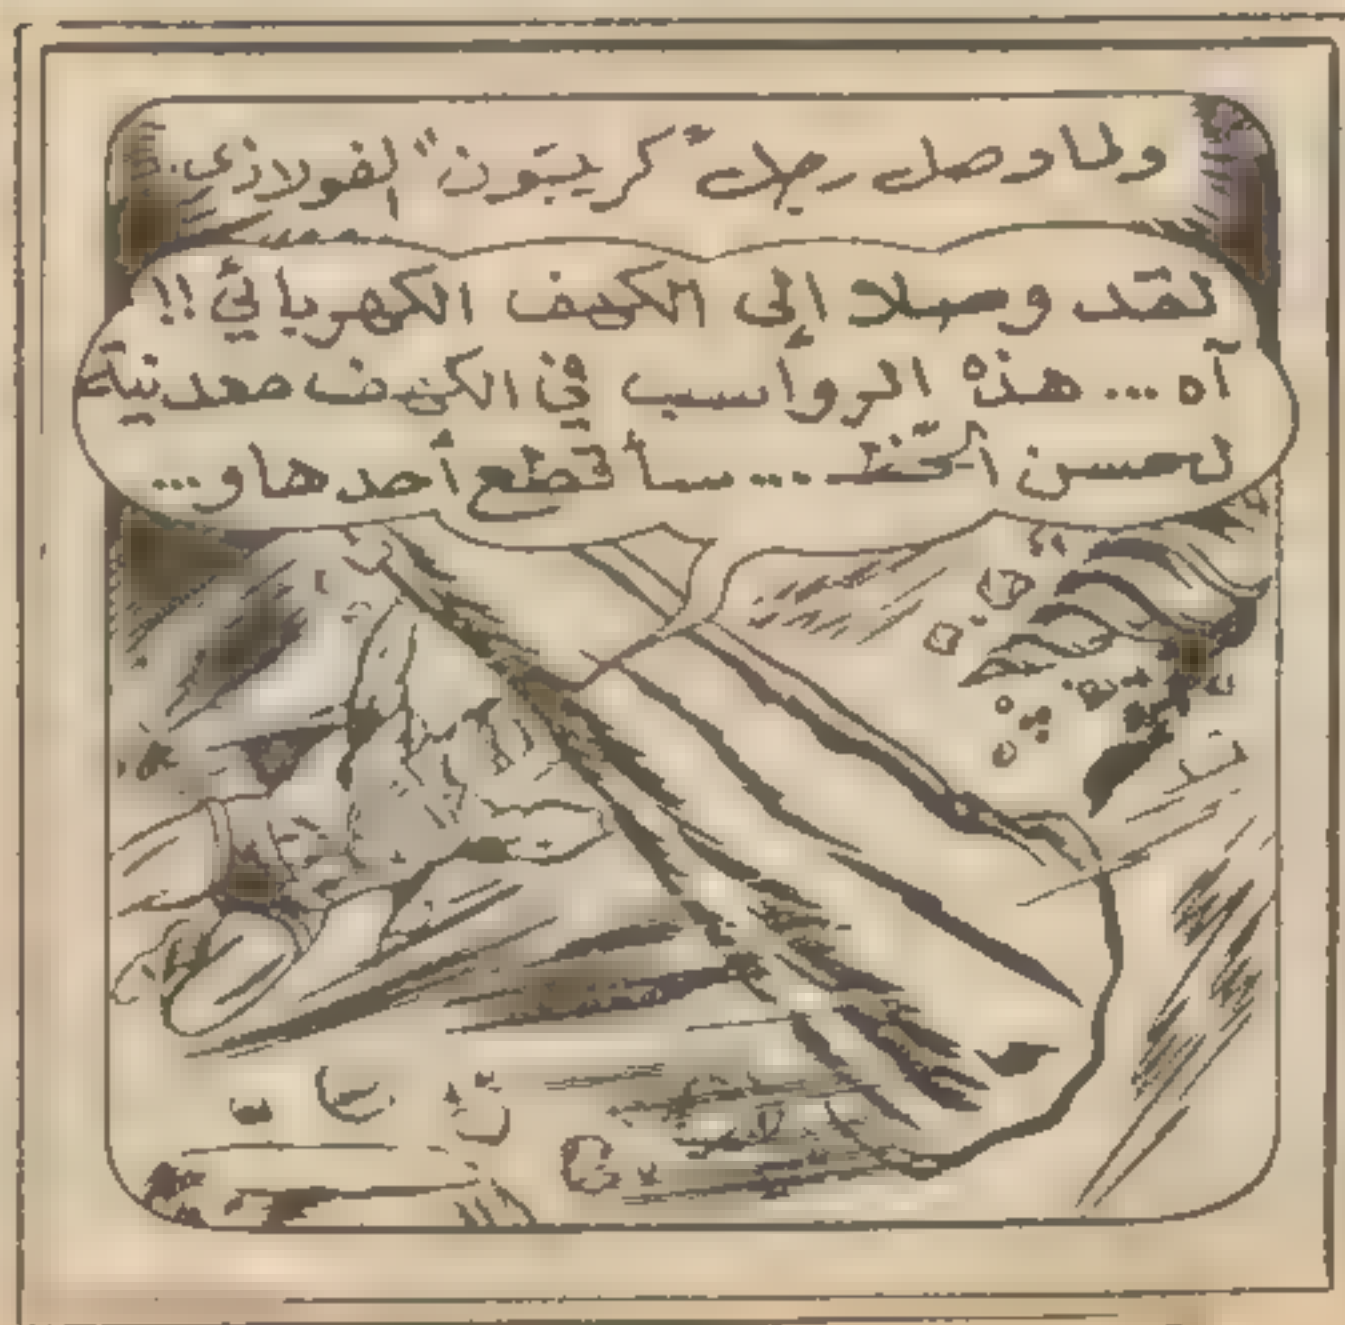 ولما وصل رجل "كريبتون" الفولاذى..
لقد وصلا إلى الكهف الكهربائي!!
آه... هذه الرواسب في الكهف معدنية
لحسن الحظ... سأقطع أحدها و...